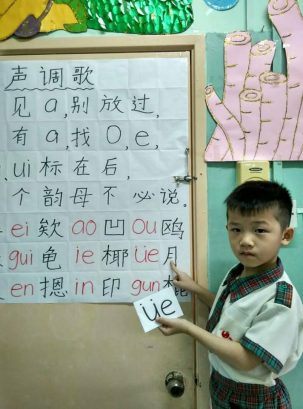 声调歌
见a,别放过,
有a,找O,e,
,ui标在后,
个韵母不必说。
ei欸ao凹ou鸥
gui龟ie椰üe月
en摁in印gun棍
üe